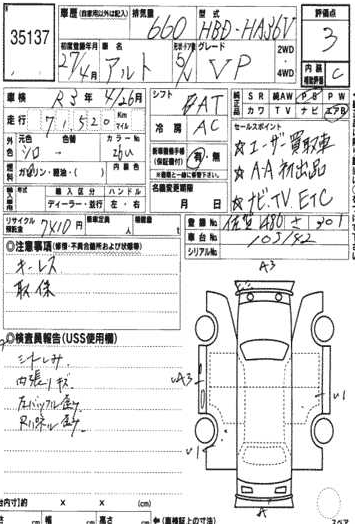 35137
車歴 (自家用以外は記入) 排気量 660 型式 HBD-HA36V
評価点 3
初度登録年月 27/4月 車名 アルト 形状・ドア数 5/V グレード VP 2WD ・ 4WD
内装 補助評価 C
車検 R3年4/26月 シフト FAT
純正品 SR 純AW PS PW カワ TV ナビ エアB
走行 7,520 Km マイル
冷房 AC
セールスポイント
☆ユーザー買取車
☆AA初出品
☆ナビ.TV.ETC
外色 元色 シロ 色替 カラーNo 26U
燃料 ガソリン・軽油・( ) 内装色
新車整備手帳 (保証書付) 有・無
※書類と一緒に保管下さい。
輸入車 輸入区分 ディーラー・並行 ハンドル 左・右
名義変更期限 月 日
リサイクル預託金 7410円 乗車定員 人 積載量 t
登録No 佐賀 480 さ 301
車台No 103182
シリアルNo
◎注意事項 (修復・不具合箇所および状態等)
キーレス
取保
◎検査員報告 (USS使用欄)
シートしみ
内張りキズ
Rリアパネル
A3
UA3
U1
U1
A
台内寸] 約 × × (cm)
cm 幅 cm 高さ cm ← (車検証上の寸法)